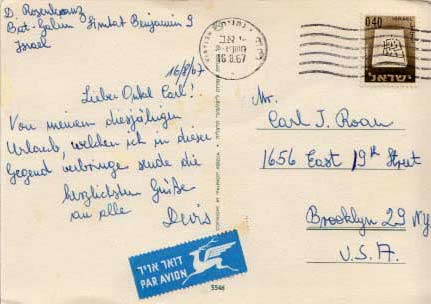 D. Rosenkranz
Bat-Galim Simtat Benjamin 9
Israel
16/8/67
Lieber Onkel Carl!
Von meinem diesjährigen
Urlaub, welchen ich in dieser
Gegend verbringe sende die
herzlichsten Grüße
an alle
Devis
דואר אויר
PAR AVION
5546
16.8.67
0.40
ISRAEL
ישראל
Mr.
Carl J. Roan
1656 East 19th Street
Brooklyn 29 Ny.
U.S.A.